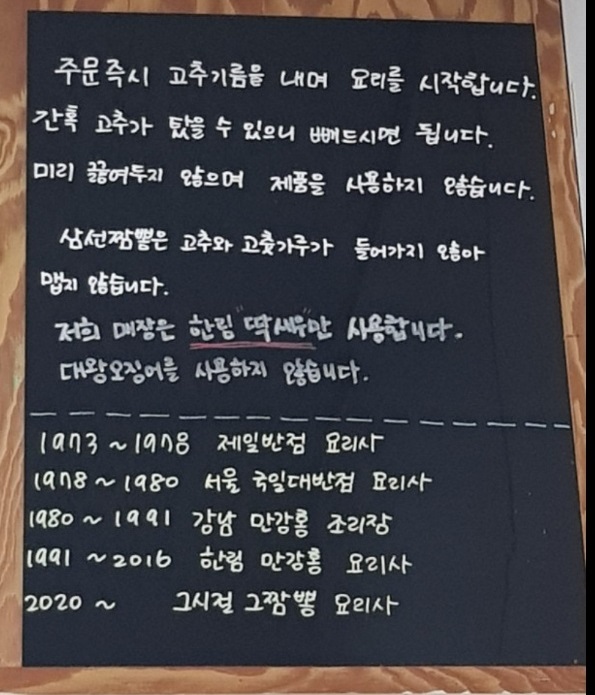 주문즉시 고추기름을 내며 요리를 시작합니다.
간혹 고추가 탔을 수 있으니 빼드시면 됩니다.
미리 끓여두지 않으며 제품을 사용하지 않습니다.
삼선짬뽕은 고추와 고춧가루가 들어가지 않아
맵지 않습니다.
저희 매장은 한림 "딱새우"만 사용합니다.
대왕오징어를 사용하지 않습니다.
1973 ~ 1978 제일반점 요리사
1978 ~ 1980 서울 국일대반점 요리사
1980 ~ 1991 강남 만강홍 조리장
1991 ~ 2016 한림 만강홍 요리사
2020 ~ 그시절 그짬뽕 요리사